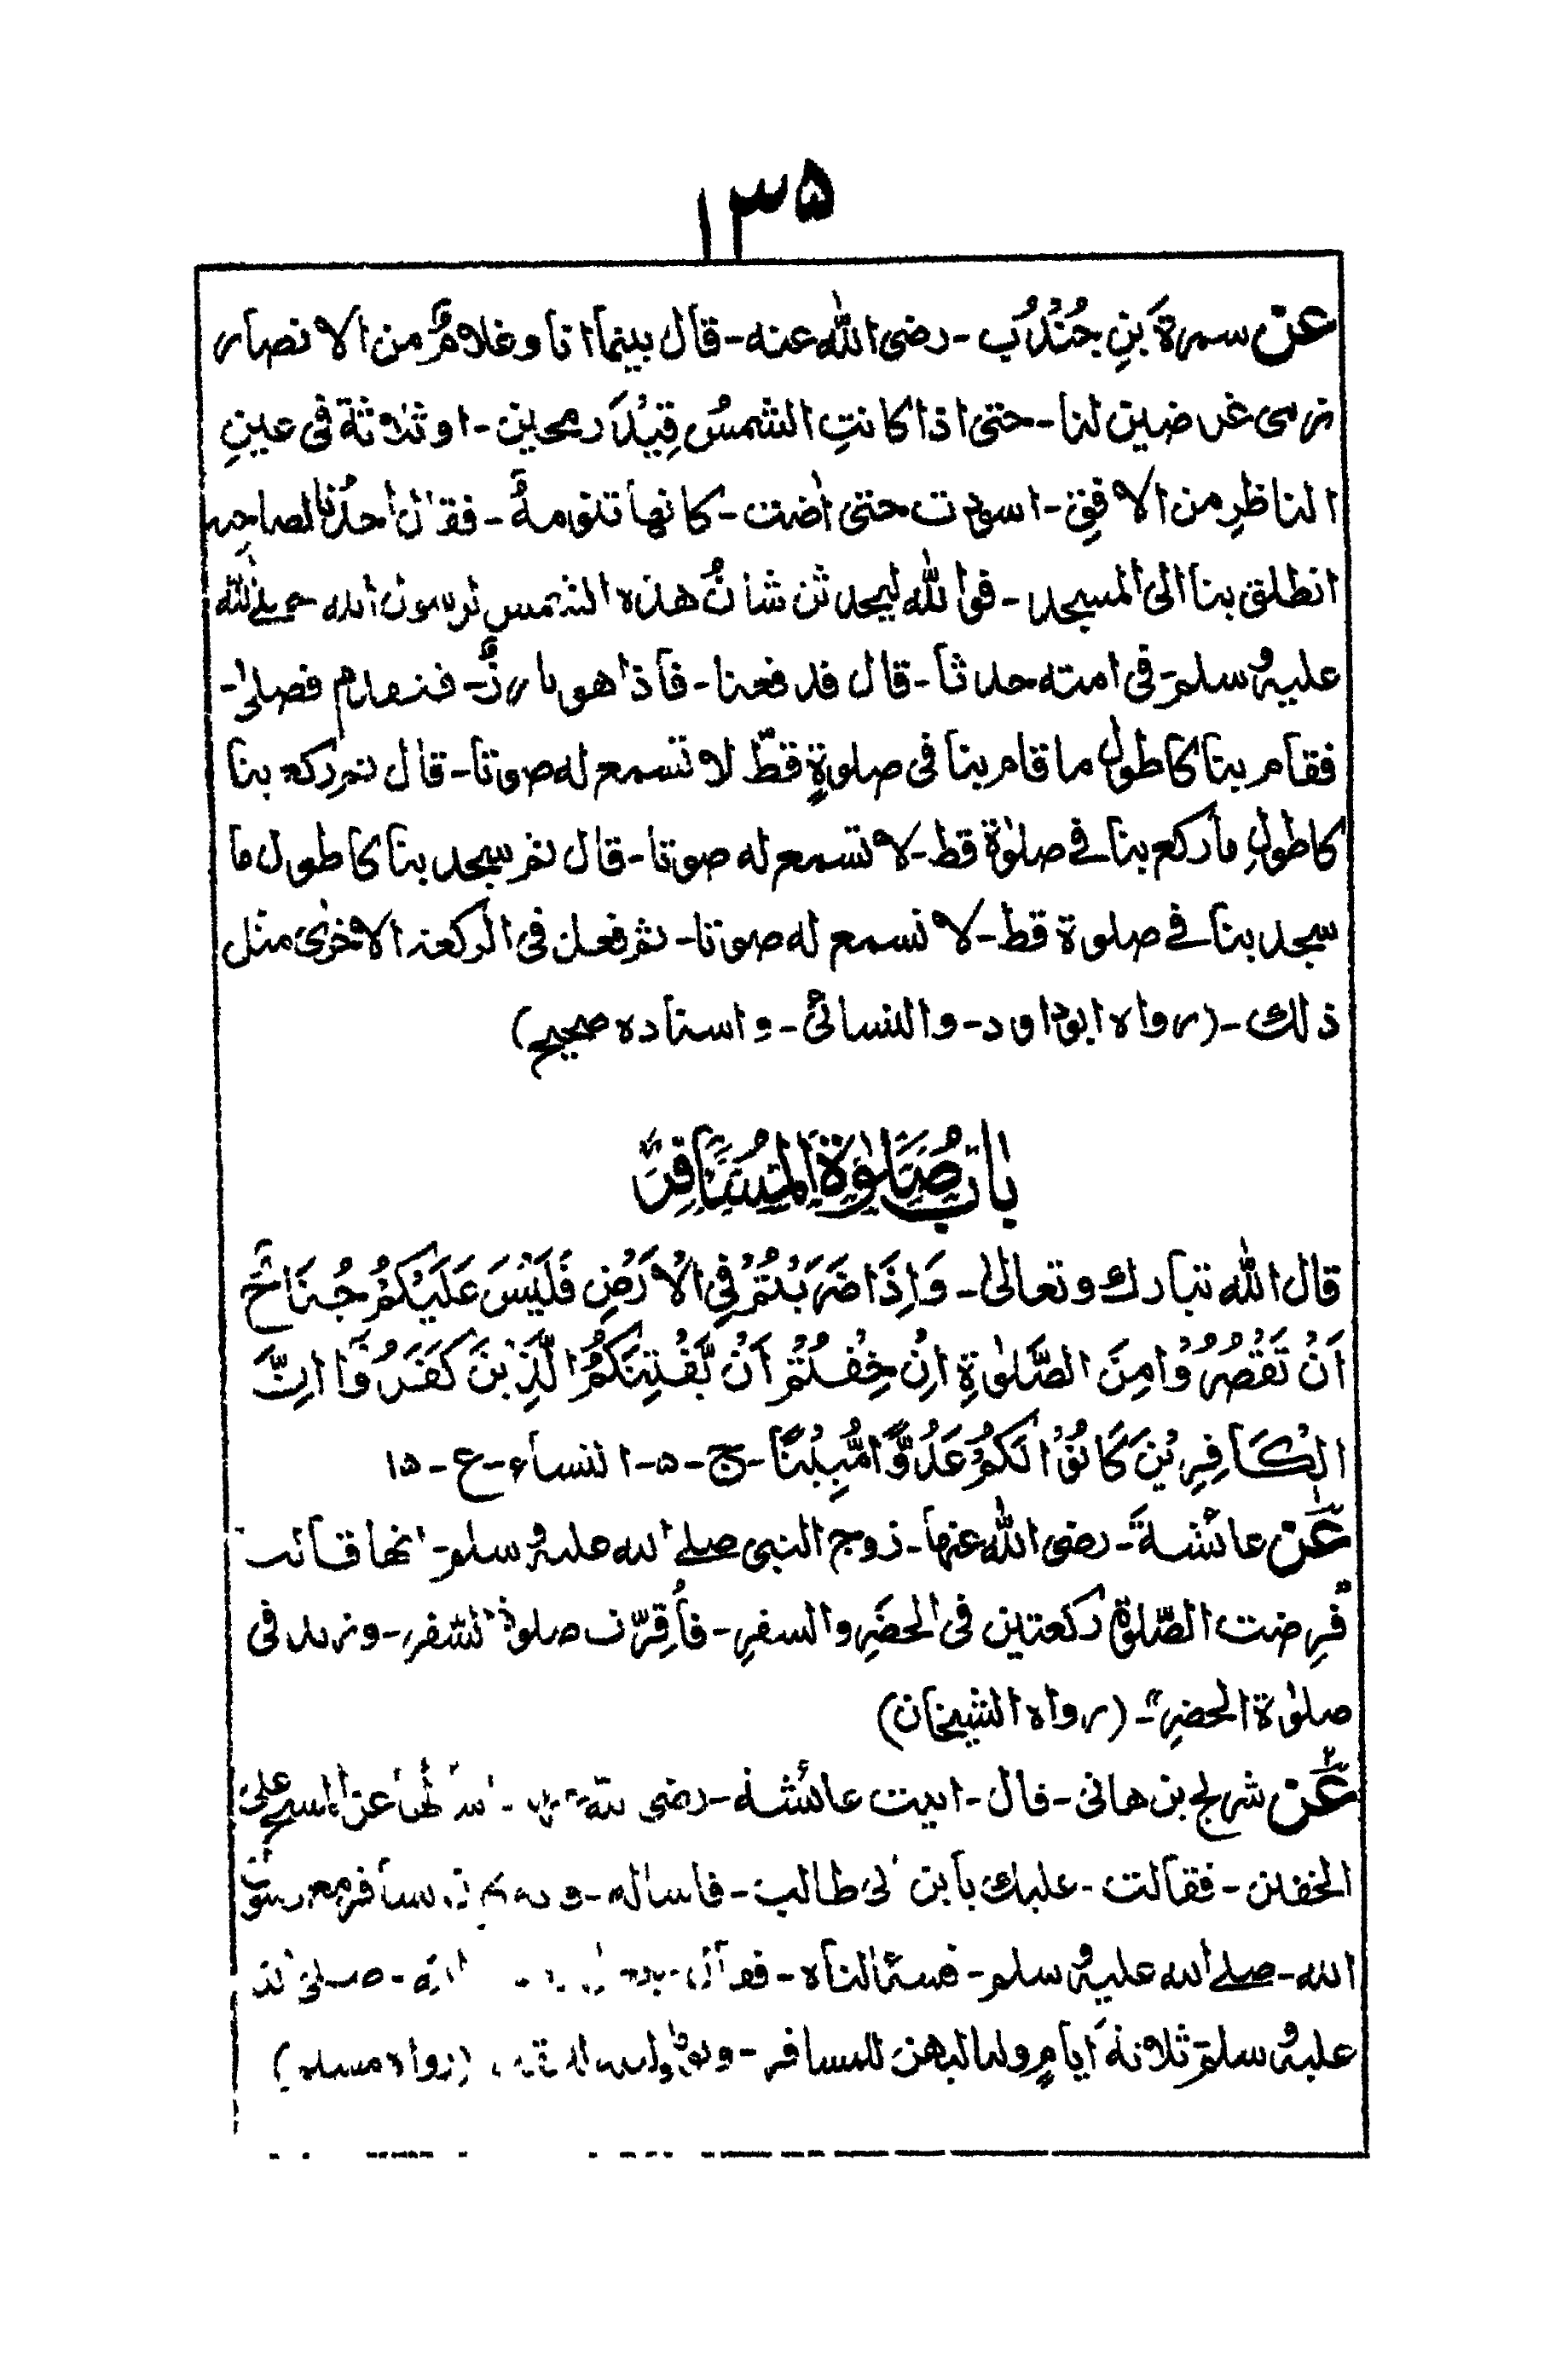 ۱۳۵
عن سمرةَ بنِ جُنْدُب - رضی الله عنه - قال بینما انا وغلامٌ من الانصار
نرمی غرضین لنا - حتی اذا کانتِ الشمسُ قِیْدَ رمحین - او ثلاثة فی عینِ
الناظرِ من الافقِ - اسودت حتی اٰضت - کانها تنومةٌ - فقال احدُنا لصاحبه
انطلق بنا الی المسجد - فوالله لیحدثن شانُ هذه الشمس لرسول الله صلی الله
علیه وسلم - فی امته حدثا - قال فدفعنا - فاذا هو بارزٌ - فتقدم فصلیٰ -
فقام بنا کاطول ما قام بنا فی صلوةٍ قطّ لا نسمع له صوتا - قال ثم رکع بنا
کاطولِ ما رکع بنا فے صلوٰة قط - لا نسمع له صوتا - قال ثم سجد بنا کاطول ما
سجد بنا فے صلوة قط - لا نسمع له صوتا - ثم فعل فی الرکعة الاخریٰ مثل
ذلك - (رواه ابوداود - والنسائی - واسناده صحیح)
بَابُ صَلٰوةِ الْمُسَافِرِ
قال الله تبارك وتعالیٰ - وَاِذَا ضَرَبْتُمْ فِی الْاَرْضِ فَلَیْسَ عَلَیْکُمْ جُنَاحٌ
اَنْ تَقْصُرُوْا مِنَ الصَّلٰوةِ اِنْ خِفْتُمْ اَنْ یَّفْتِنَکُمُ الَّذِیْنَ کَفَرُوْا اِنَّ
الْکَافِرِیْنَ کَانُوْا لَکُمْ عَدُوًّا مُّبِیْنًا - ج - ۵ - النساء - ع - ۱۵
عن عائشةَ - رضی الله عنها - زوج النبی صلے الله علیه وسلم - انها قالت
فُرِضت الصّلوة رکعتین فی الحضَرِ والسفرِ - فاُقِرّت صلوة السّفر - وزید فی
صلوٰة الحضرِ - (رواه الشیخان)
عن شریح بن هانی - قال - اتیت عائشة - رضی عن المسح علی
الخفین - فقالت - علیك بابن ابی طالب - فاساله - یسافر مع رسول
الله - صلے الله علیه وسلم - فسئالناه - فقال الله - صلی الله
علیه وسلم ثلاثة ایامٍ ولیالیهن للمسافر - (رواه مسلم)